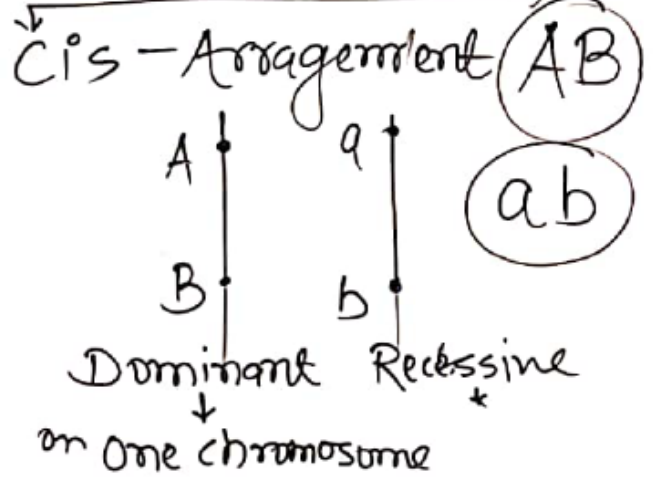 Cis - Arragement AB
ab
A a
B b
Dominant Recessine
on one chromosome